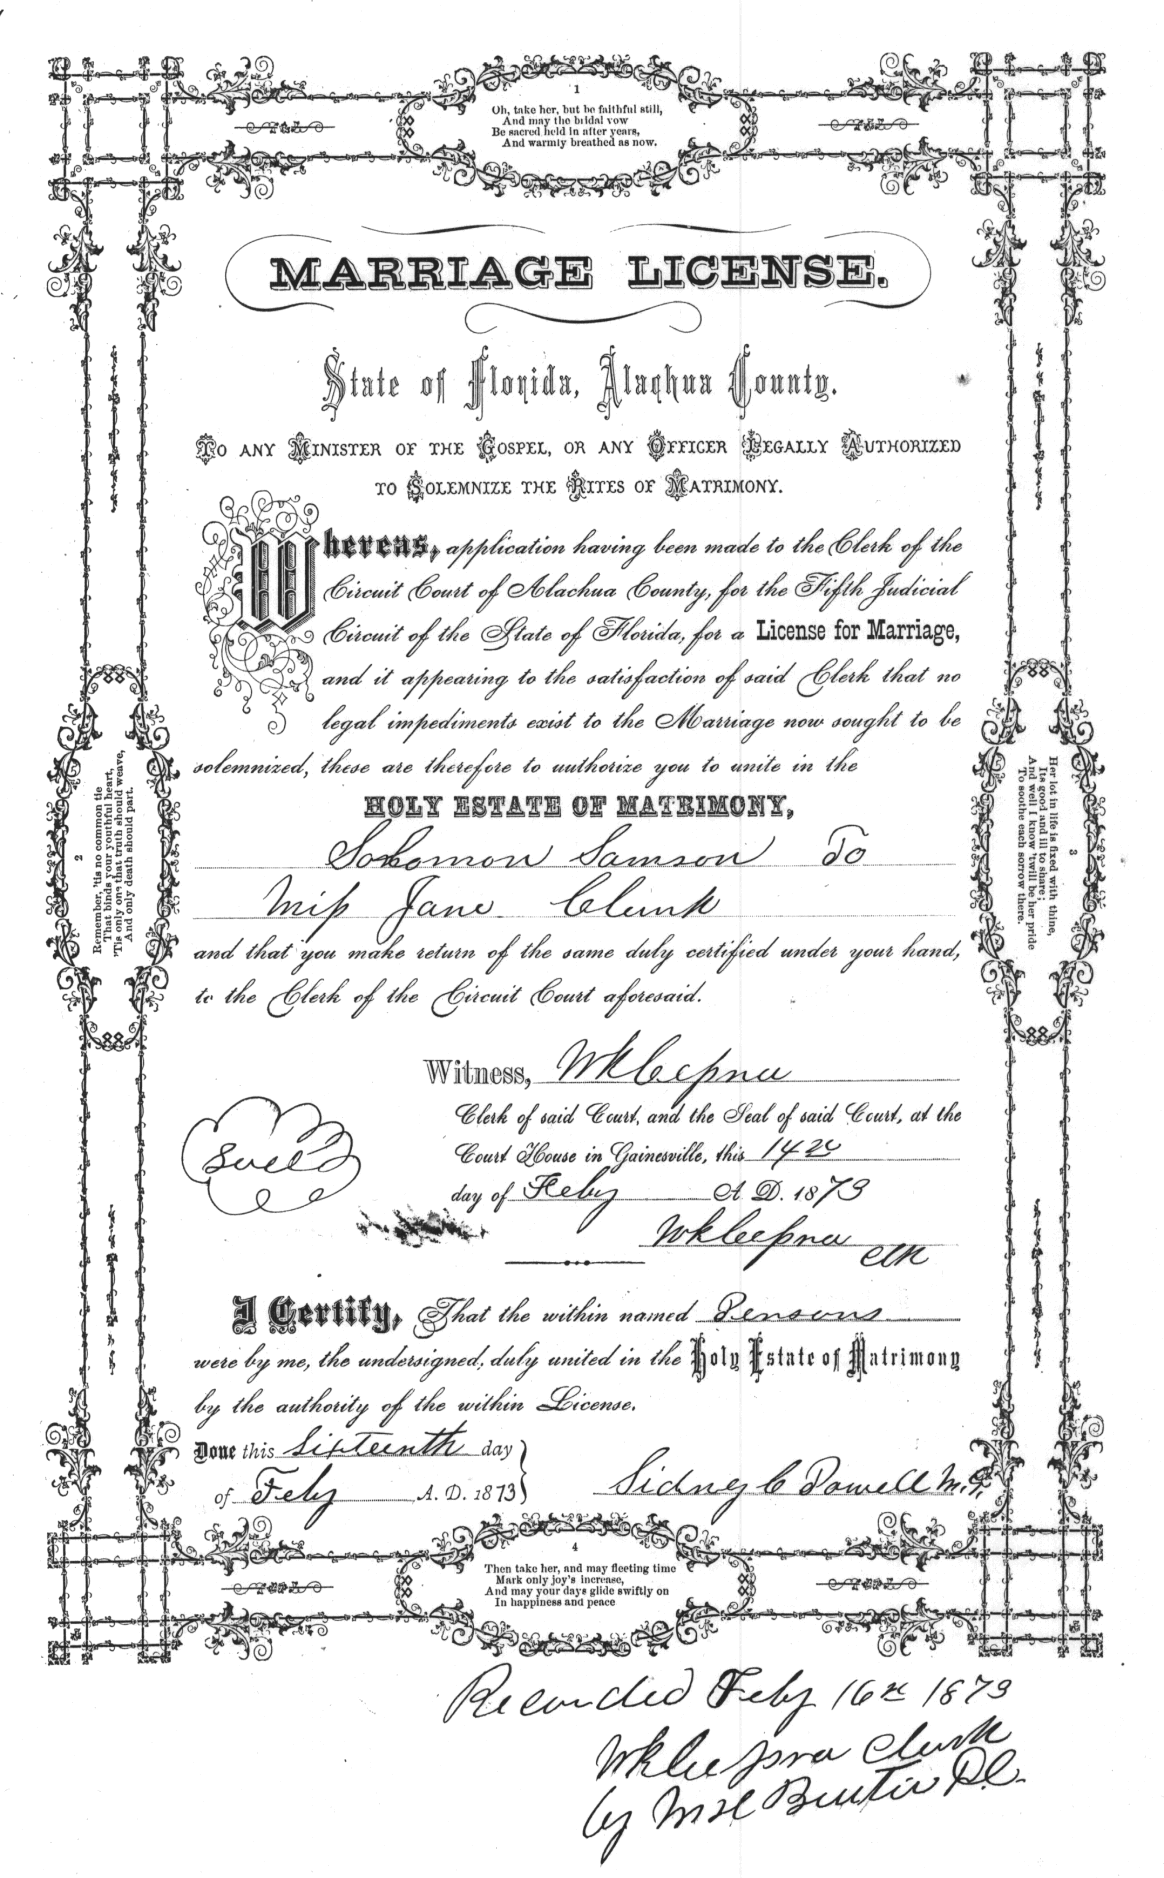 1
Oh, take her, but be faithful still,
And may the bridal vow
Be sacred held in after years,
And warmly breathed as now.
MARRIAGE LICENSE.
State of Florida, Alachua County.
TO ANY MINISTER OF THE GOSPEL, OR ANY OFFICER LEGALLY AUTHORIZED
TO SOLEMNIZE THE RITES OF MATRIMONY.
Whereas, application having been made to the Clerk of the
Circuit Court of Alachua County, for the Fifth Judicial
Circuit of the State of Florida, for a License for Marriage,
and it appearing to the satisfaction of said Clerk that no
legal impediments exist to the Marriage now sought to be
solemnized, these are therefore to authorize you to unite in the
HOLY ESTATE OF MATRIMONY,
Solomon Samson To
Miss Jane Clark
and that you make return of the same duly certified under your hand,
to the Clerk of the Circuit Court aforesaid.
2
Remember, 'tis no common tie
That binds your youthful heart,
'Tis only one that truth should weave,
And only death should part.
3
Her lot in life is fixed with thine,
Its good and ill to share;
And well I know 'twill be her pride
To soothe each sorrow there.
Witness, W K Cessna
Clerk of said Court, and the Seal of said Court, at the
Court House in Gainesville, this 14th
day of Feby A. D. 1873
Seal
W K Cessna
Clk
I Certify, That the within named Persons
were by me, the undersigned, duly united in the Holy Estate of Matrimony
by the authority of the within License.
Done this Sixteenth day
of Feby A. D. 1873
Sidney C Powell M.G.
4
Then take her, and may fleeting time
Mark only joy's increase,
And may your days glide swiftly on
In happiness and peace
Recorded Feby 16th 1873
W K Cessna Clerk
by D.C.